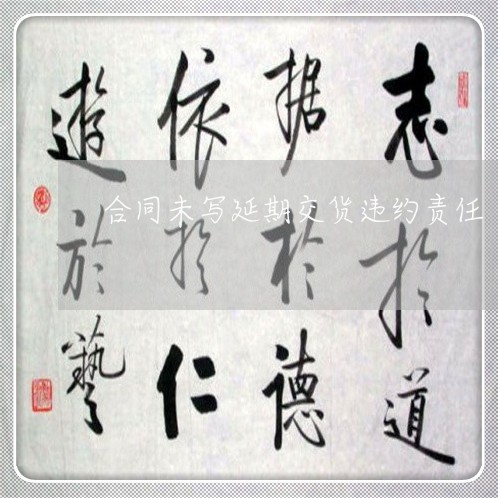 志於道
据於德
依於仁
遊於藝
合同未写延期交货违约责任